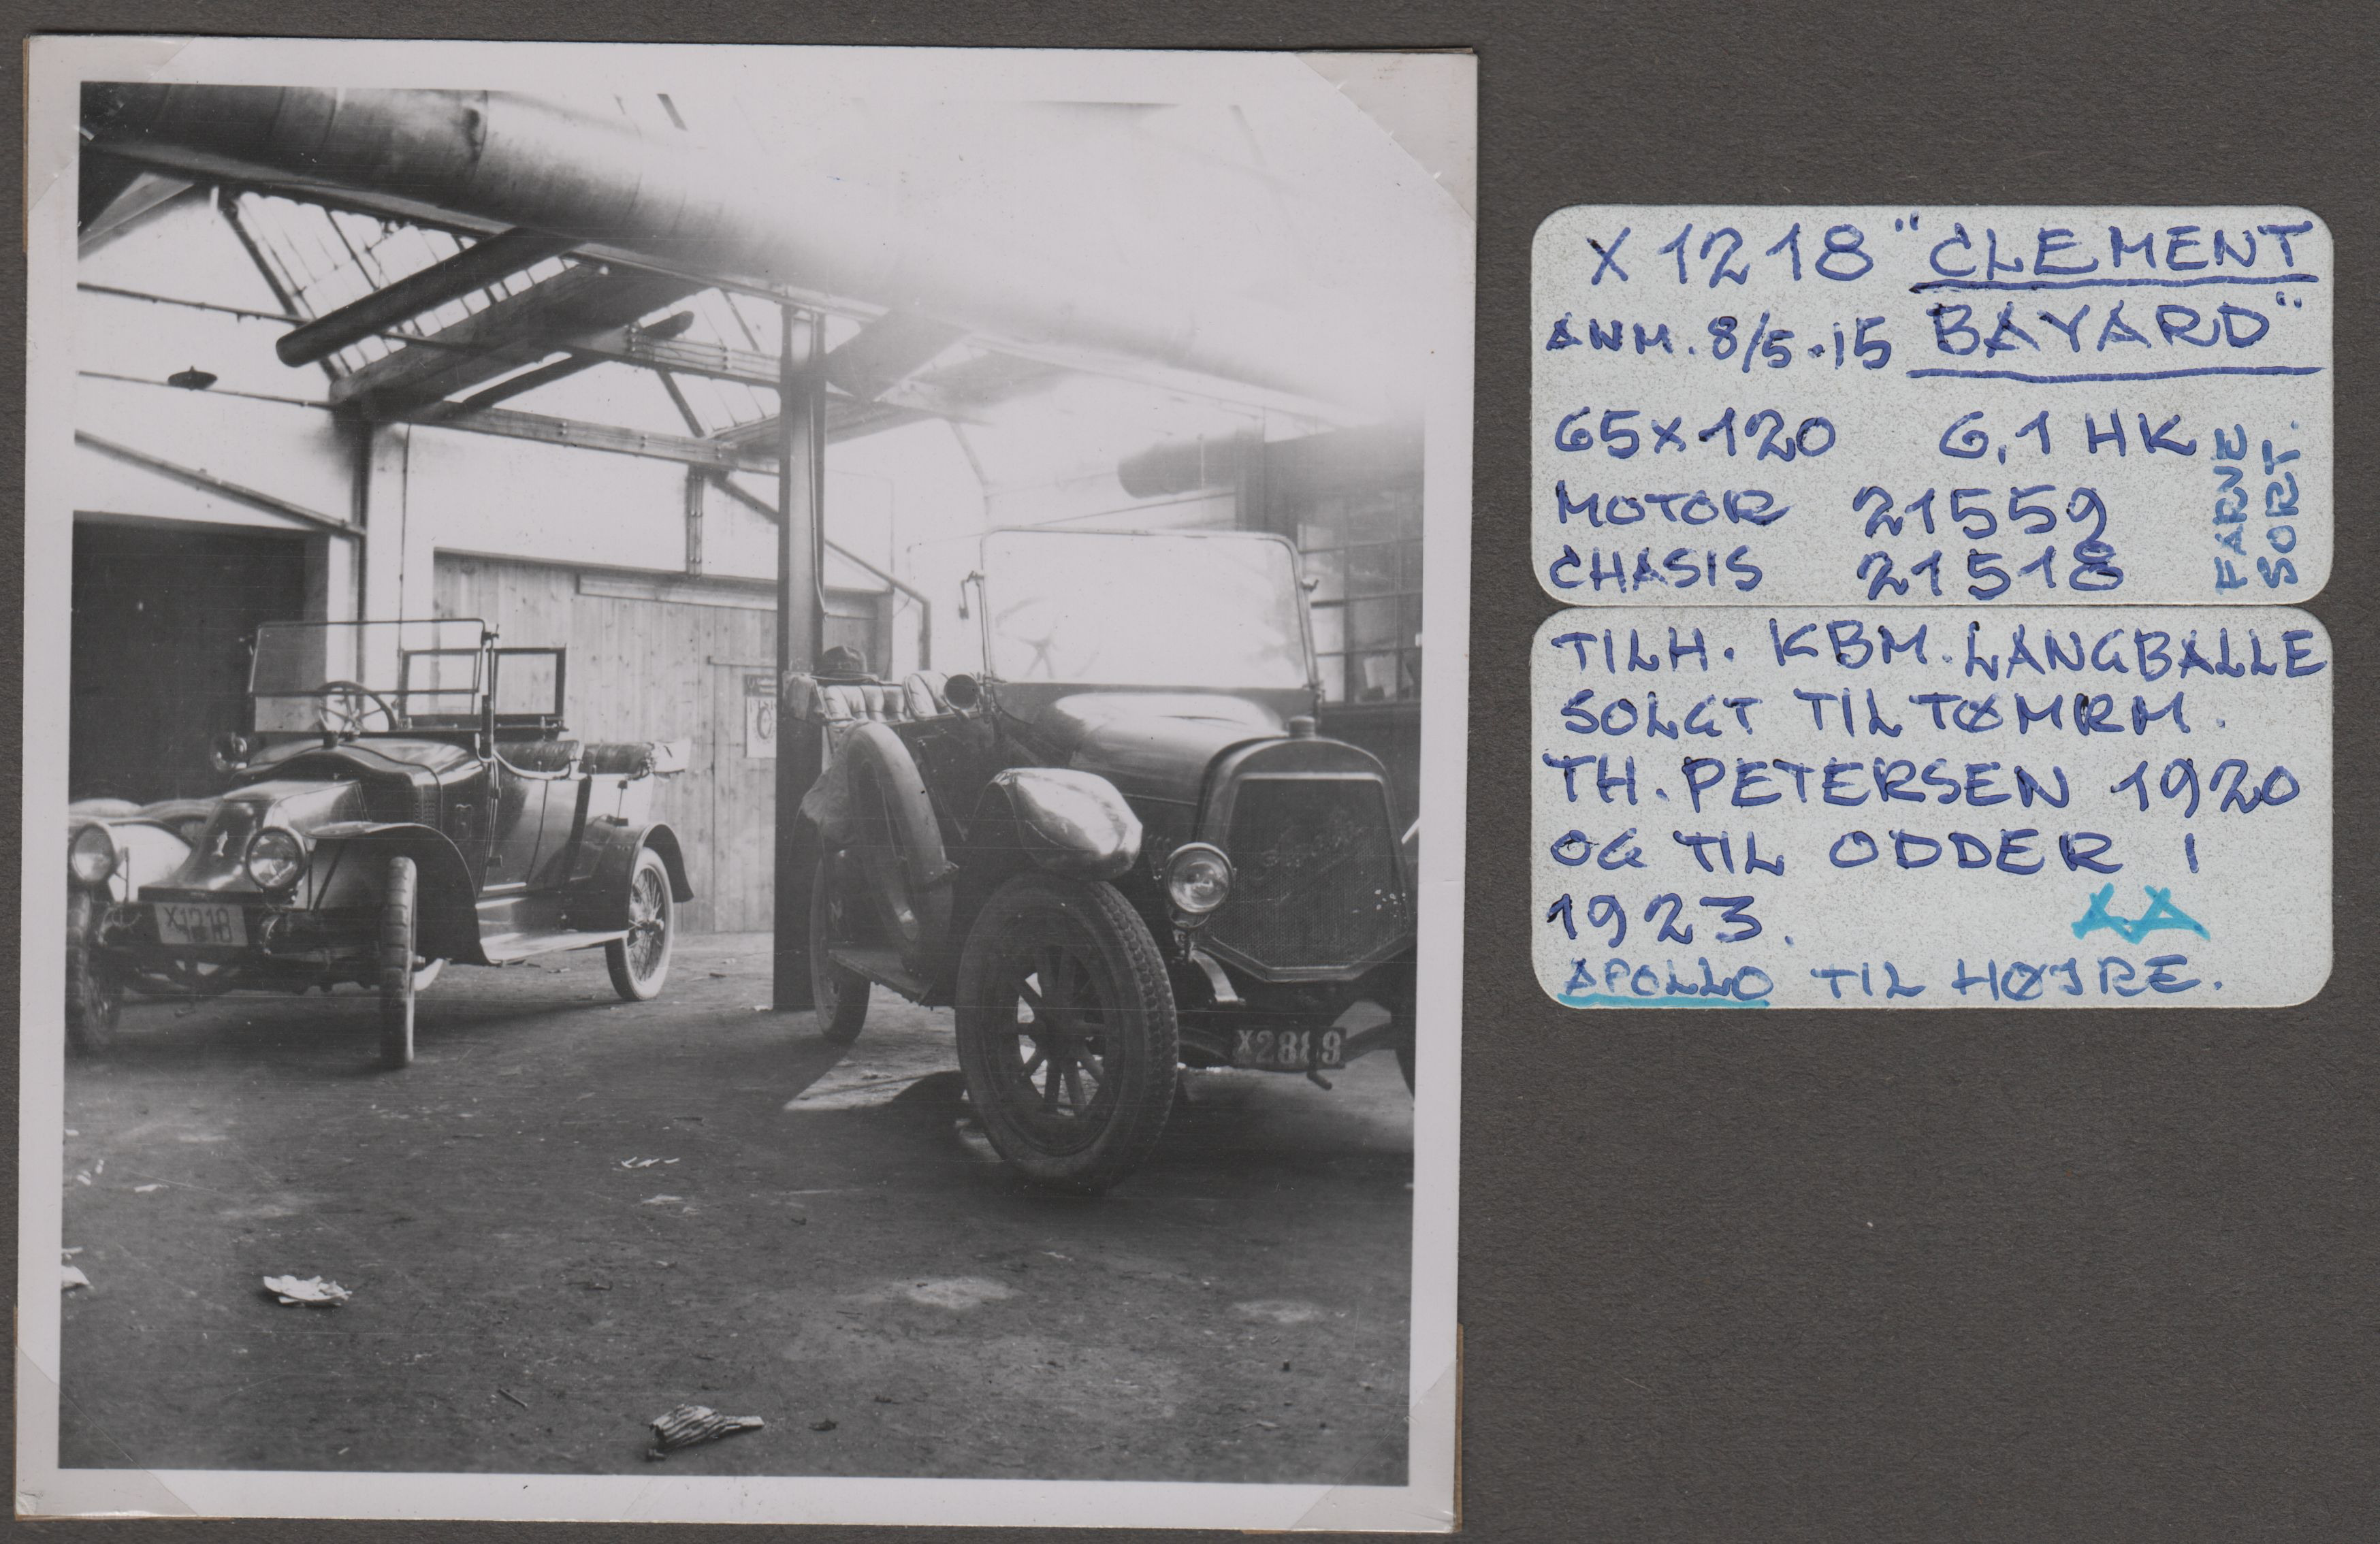 X1218
X2889
X 1218 "CLEMENT
ANM. 8/5-15 BAYARD"
65X120 6,1 HK
MOTOR 21559
CHASIS 21518
FARVE
SORT.
TILH. KBM. LANGBALLE
SOLGT TIL TØMRM.
TH. PETERSEN 1920
OG TIL ODDER I
1923.
APOLLO TIL HØJRE.